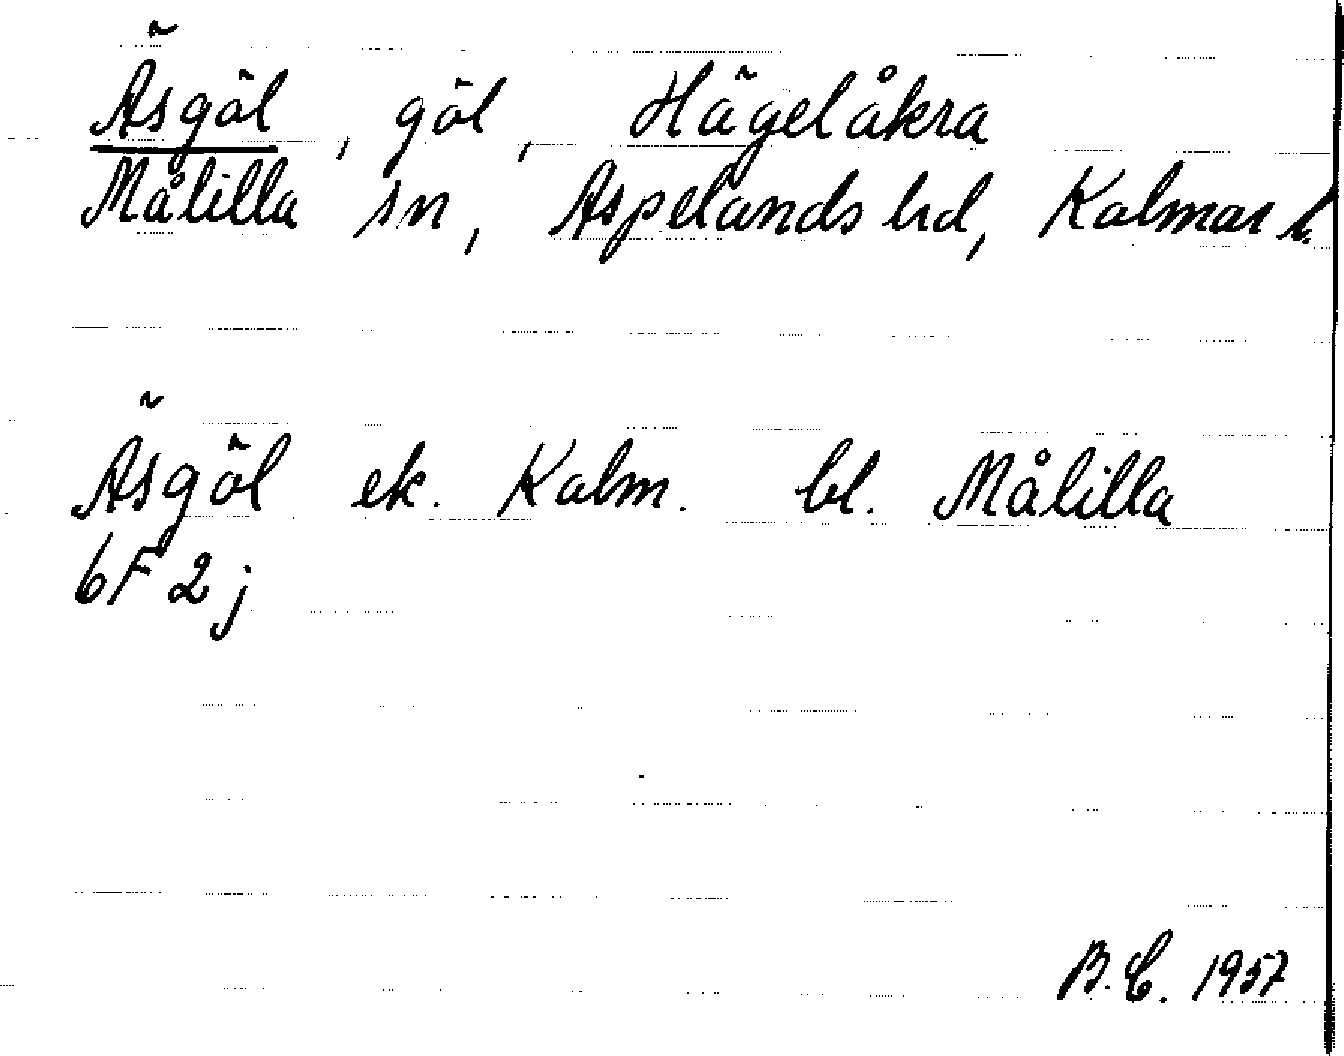 Äsgöl, göl, Hägelåkra
Målilla sn, Aspelands hd, Kalmar l.
Äsgöl ek. Kalm. bl. Målilla
6F 2j
B.C. 1957